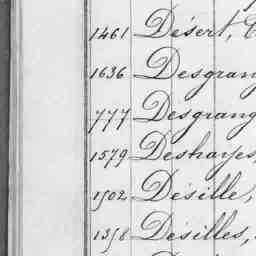 1461 Désert,
1636 Desgran
777 Desgrang
1579 Deshayes,
1502 Désille,
1358 Désilles,